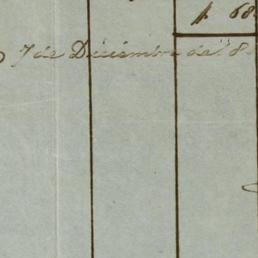 $ 68
7 de Diciembre de 8